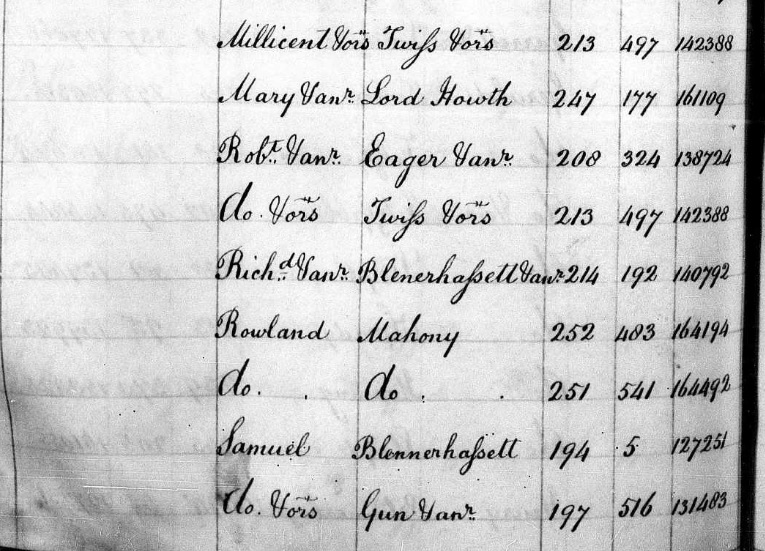 Millicent Vors Twiss Vors 213 497 142388
Mary Vanr. Lord Howth 247 177 161109
Robt. Vanr. Eager Vanr. 208 324 138724
do. Vors Twiss Vors 213 497 142388
Richd. Vanr. Blenerhassett Vanr. 214 192 140792
Rowland Mahony 252 483 164194
do. . do . . 251 541 164492
Samuel Blennerhassett 194 5 127251
do. Vors Gun Vanr. 197 516 131483